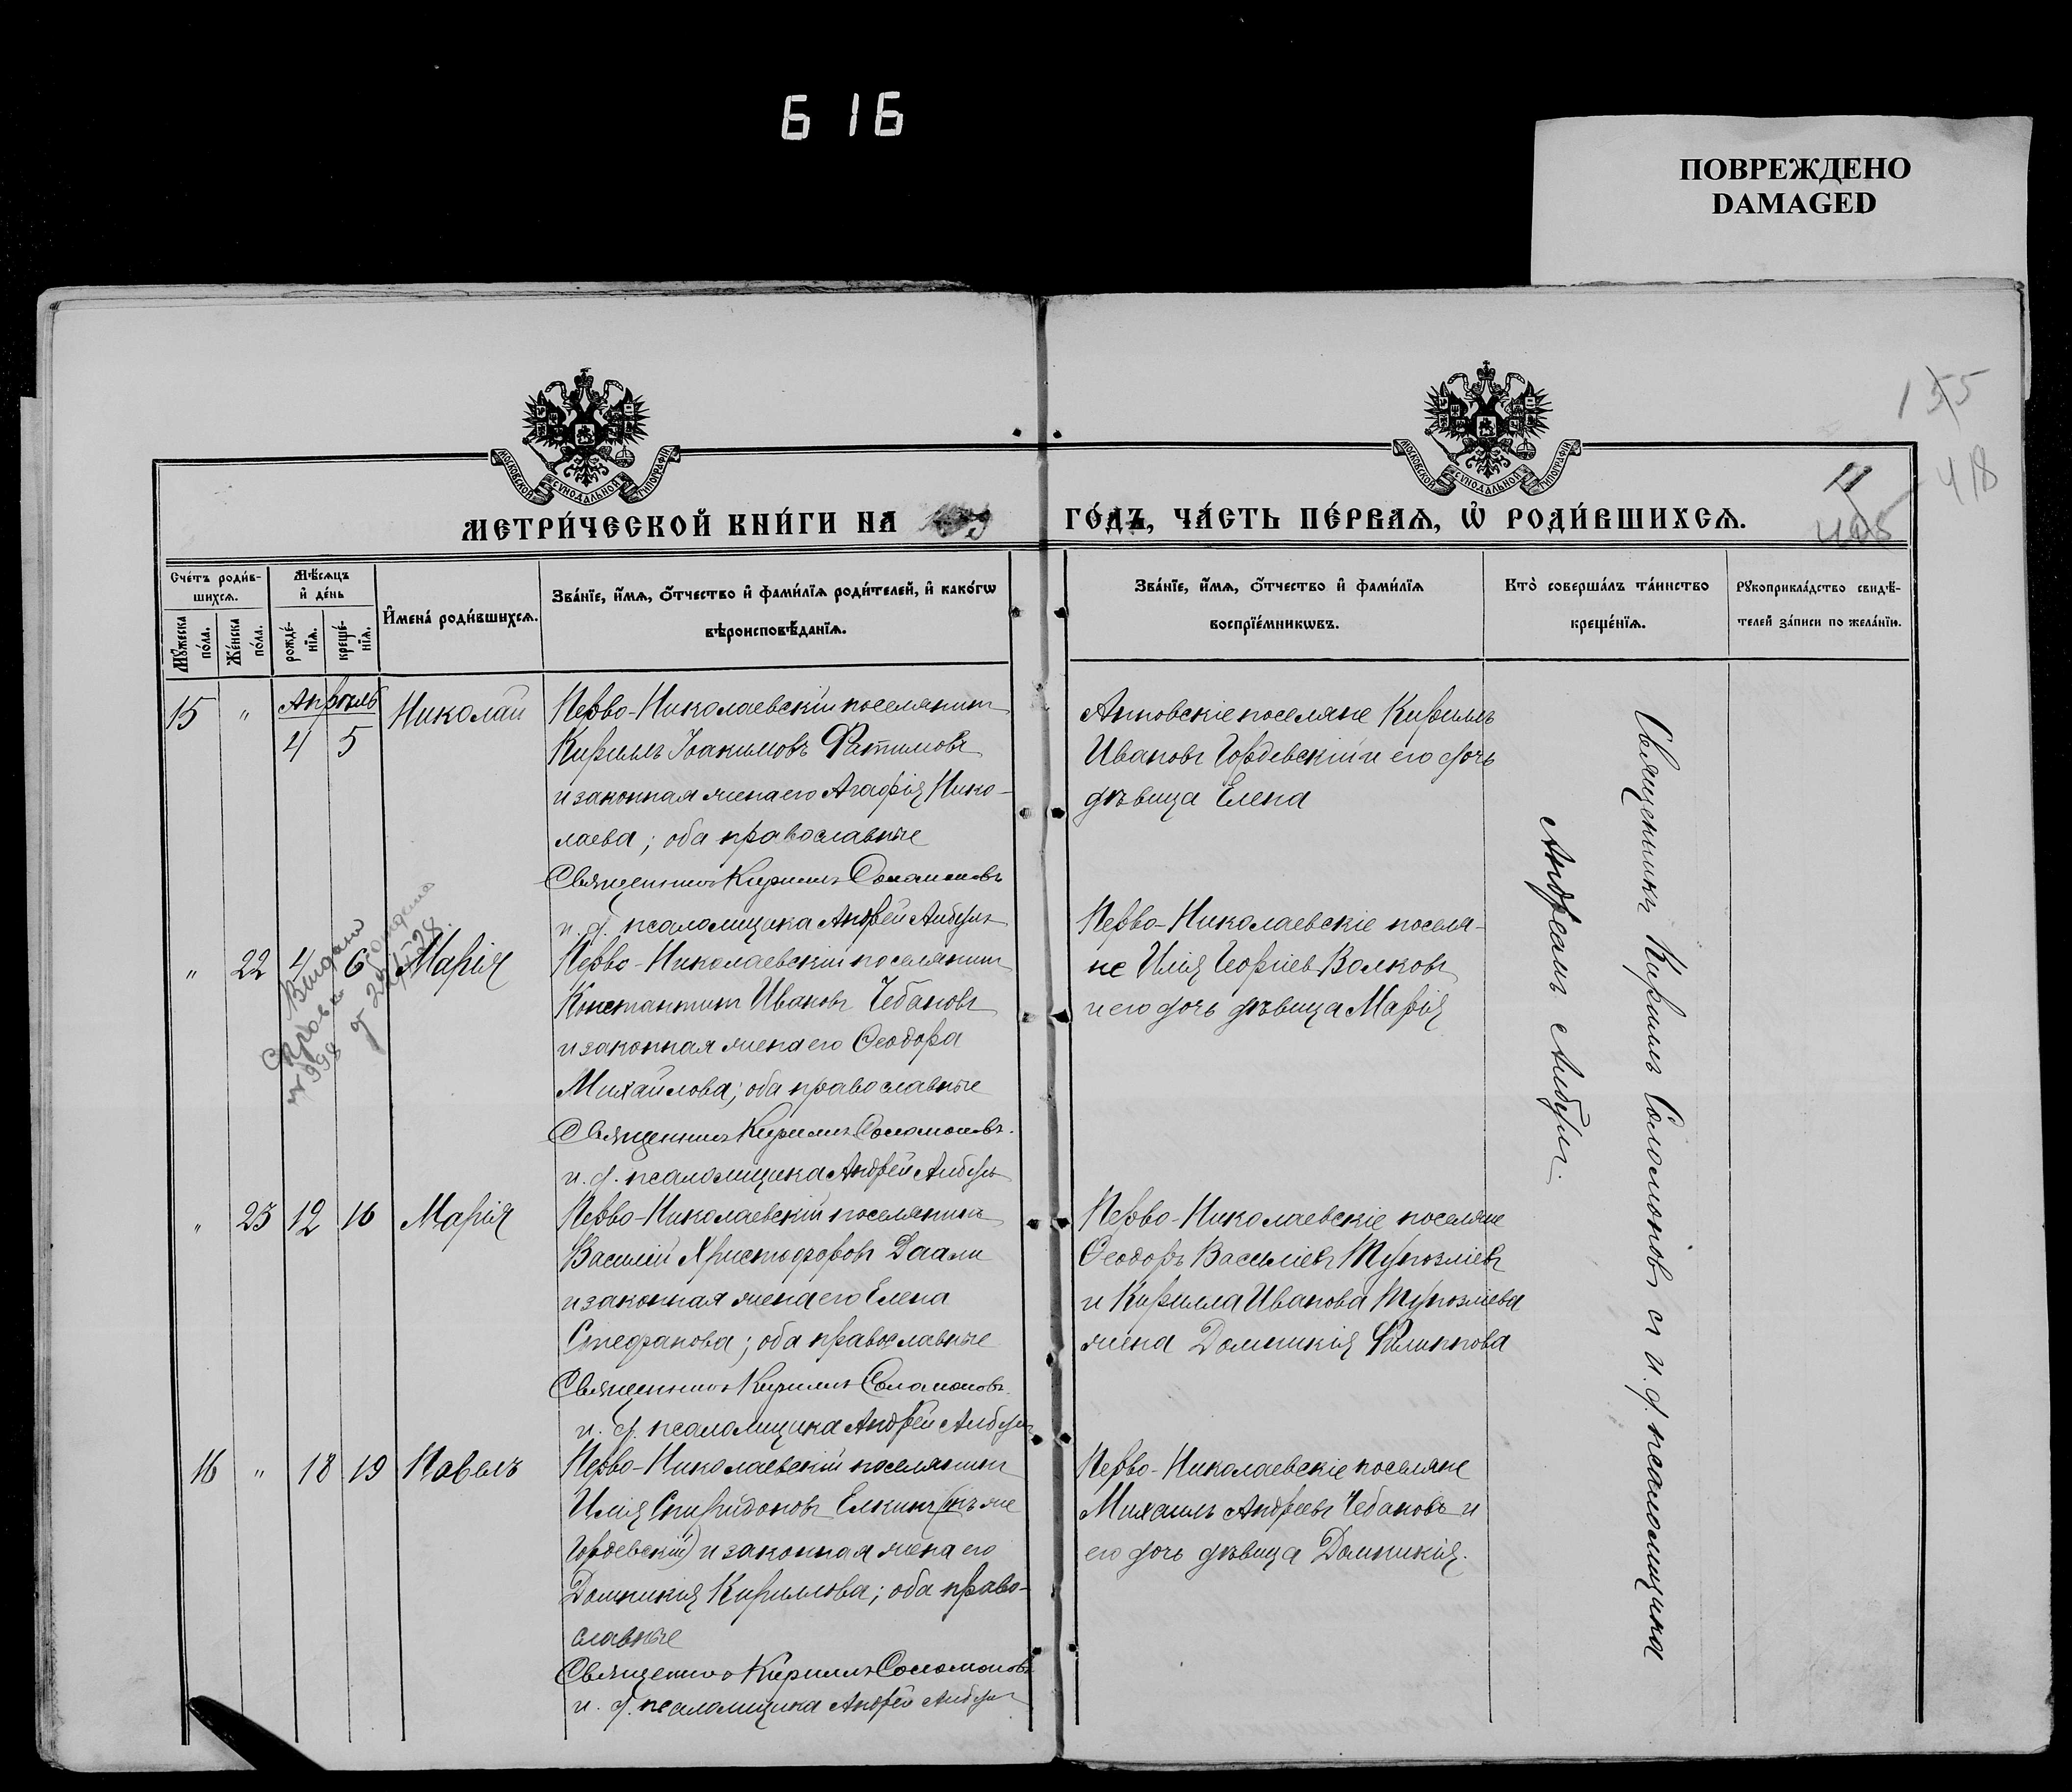 616
ПОВРЕЖДЕНО
DAMAGED
155
418
МОСКОВСКОЙ СѴНОДАЛЬНОЙ ТИПОГРАФІИ
МОСКОВСКОЙ СѴНОДАЛЬНОЙ ТИПОГРАФІИ
МЕТРИ́ЧЕСКОЙ КНИ́ГИ НА
ГО́ДЪ, ЧА́СТЬ ПЕ́РВАѦ, Ѡ҆ РОДИ́ВШИХСѦ.
Сче́тъ роди́в-
шихсѧ.
Мꙋ́жеска по́ла.
Же́нска по́ла.
Мѣ́сѧцъ и҆ де́нь
рожде́-
нїѧ.
креще́-
нїѧ.
И҆мена̀ роди́вшихсѧ.
Зва́нїе, и҆́мѧ, ѻ҆́тчество и҆ фами́лїѧ роди́телей, и҆ како́гѡ
вѣроисповѣ́данїѧ.
Зва́нїе, и҆́мѧ, ѻ҆́тчество и҆ фами́лїѧ
воспрїе́мникѡвъ.
Кто̀ соверша́лъ та́инство
креще́нїѧ.
Рꙋкоприкла́дство свидѣ́-
телей за́писи по жела́нїю.
15 " Апрѣль 4 5 Николай
Перво-Николаевскій поселянинъ
Кириллъ Іоакимовъ Фатимовъ
и законная жена его Агафія Нико-
лаева; оба православные
Священникъ Кириллъ Соломоновъ
и. д. псаломщика Андрей Анбулъ
Анновскіе поселяне Кириллъ
Ивановъ Гордевскій и его дочь
дѣвица Елена
" 22 4 6 Марія
Выдано
справка
№ 998
Перво-Николаевскій поселянинъ
Константинъ Ивановъ Чебановъ
и законная жена его Ѳеодора
Михайлова; оба православные
Священникъ Кириллъ Соломоновъ.
и. д. псаломщика Андрей Анбулъ
Перво-Николаевскіе поселя-
не Илія Георгіев Волковъ
и его дочь дѣвица Марія
" 23 12 16 Марія
Перво-Николаевскій поселянинъ
Василій Христофоровъ Даали
и законная жена его Елена
Стефанова; оба православные
Священникъ Кириллъ Соломоновъ.
и. д. псаломщика Андрей Анбулъ
Перво-Николаевскіе поселяне
Ѳеодоръ Василіевъ Тупозліевъ
и Кирилла Иванова Тупозлиева
жена Домникія Филиппова
16 " 18 19 Павелъ
Перво-Николаевскій поселянинъ
Илія Спиридоновъ Елкинъ (онъ же
Гордевскій) и законная жена его
Домникія Кириллова; оба право-
славные
Священникъ Кириллъ Соломоновъ
и. д. псаломщика Андрей Анбулъ
Перво-Николаевскіе поселяне
Михаилъ Андреевъ Чебановъ и
его дочь дѣвица Домникія.
Священникъ Кириллъ Соломоновъ съ и. д. псаломщика
Андреемъ Анбулъ.